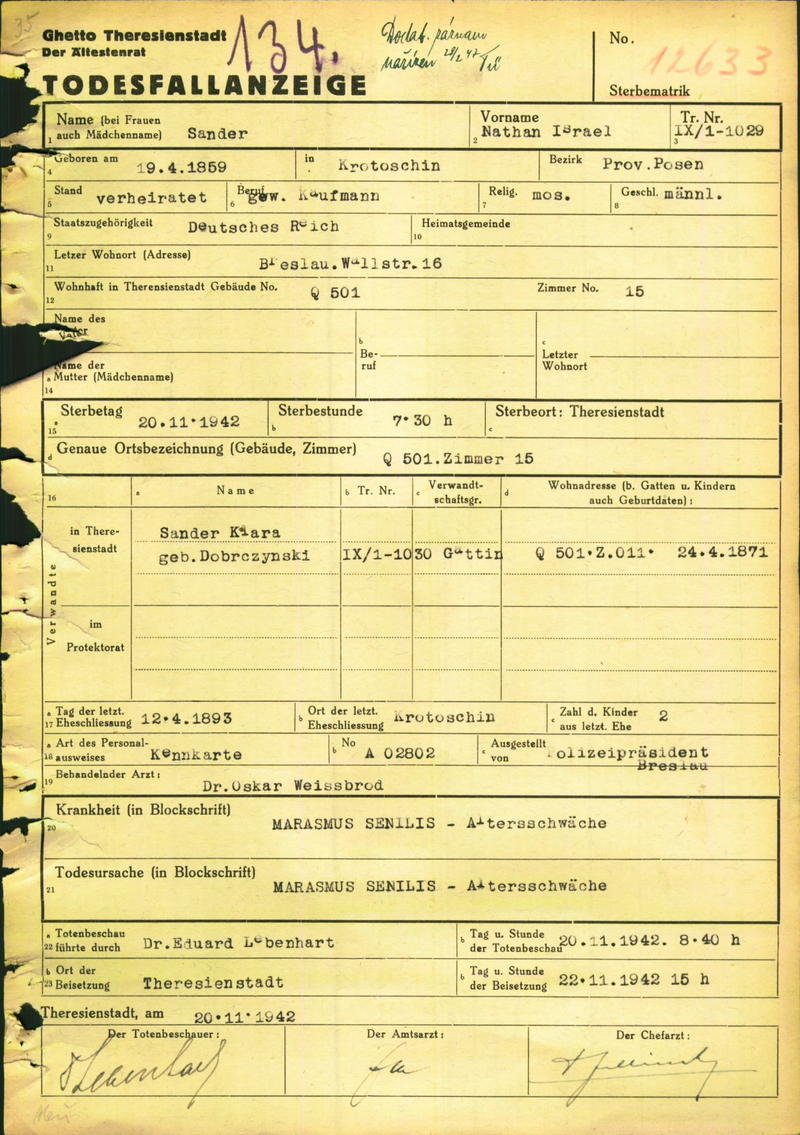 35
Ghetto Theresienstadt
Der Ältestenrat
134.
TODESFALLANZEIGE
No.
12633
Sterbematrik
Name (bei Frauen
1 auch Mädchenname) Sander
Vorname
2 Nathan Israel
Tr. Nr.
3 IX/1-1029
4 Geboren am 19.4.1859
in Krotoschin
Bezirk Prov.Posen
5 Stand verheiratet
6 Beruf gew. Kaufmann
7 Relig. mos.
8 Geschl. männl.
9 Staatszugehörigkeit Deutsches Reich
10 Heimatsgemeinde
11 Letzer Wohnort (Adresse) Breslau.Wallstr.16
12 Wohnhaft in Therensienstadt Gebäude No. Q 501
Zimmer No. 15
Name des
Vater
a Name der
Mutter (Mädchenname)
14
b
Be-
ruf
c
Letzter
Wohnort
15 a Sterbetag 20.11.1942
b Sterbestunde 7.30 h
c Sterbeort: Theresienstadt
d Genaue Ortsbezeichnung (Gebäude, Zimmer) Q 501.Zimmer 15
16
a Name
b Tr. Nr.
c Verwandt-
schaftsgr.
d Wohnadresse (b. Gatten u. Kindern
auch Geburtdaten):
Verwandte
in There-
sienstadt
Sander Klara
geb.Dobrczynski IX/1-1030 Gattin Q 501.Z.011. 24.4.1871
im
Protektorat
a Tag der letzt.
17 Eheschliessung 12.4.1893
b Ort der letzt.
Eheschliessung Krotoschin
c Zahl d. Kinder
aus letzt. Ehe 2
a Art des Personal-
18 ausweises Kennkarte
b No A 02802
c Ausgestellt
von Polizeipräsident
Breslau
19 Behandelnder Arzt: Dr.Oskar Weissbrod
Krankheit (in Blockschrift)
20 MARASMUS SENILIS - Altersschwäche
Todesursache (in Blockschrift)
21 MARASMUS SENILIS - Altersschwäche
a Totenbeschau
22 führte durch Dr.Eduard Lebenhart
b Tag u. Stunde
der Totenbeschau 20.11.1942. 8.40 h
b Ort der
23 Beisetzung Theresienstadt
b Tag u. Stunde
der Beisetzung 22.11.1942 15 h
Theresienstadt, am 20.11.1942
Der Totenbeschauer:
Der Amtsarzt:
Der Chefarzt: